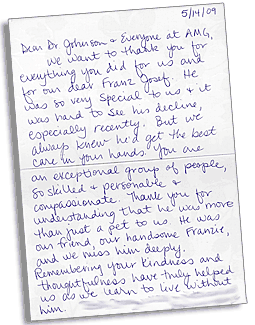 5/14/09
Dear Dr Johnson & Everyone at AMG,
We want to thank you for
everything you did for us and
for our dear Franz Josef. He
was so very special to us & it
was hard to see his decline,
especially recently. But we
always knew he'd get the best
care in your hands. You are
an exceptional group of people,
so skilled & personable &
compassionate. Thank you for
understanding that he was more
than just a pet to us. He was
our friend, our handsome Franzie,
and we miss him deeply.
Remembering your kindness and
thoughtfulness have truly helped
us as we learn to live without
him.